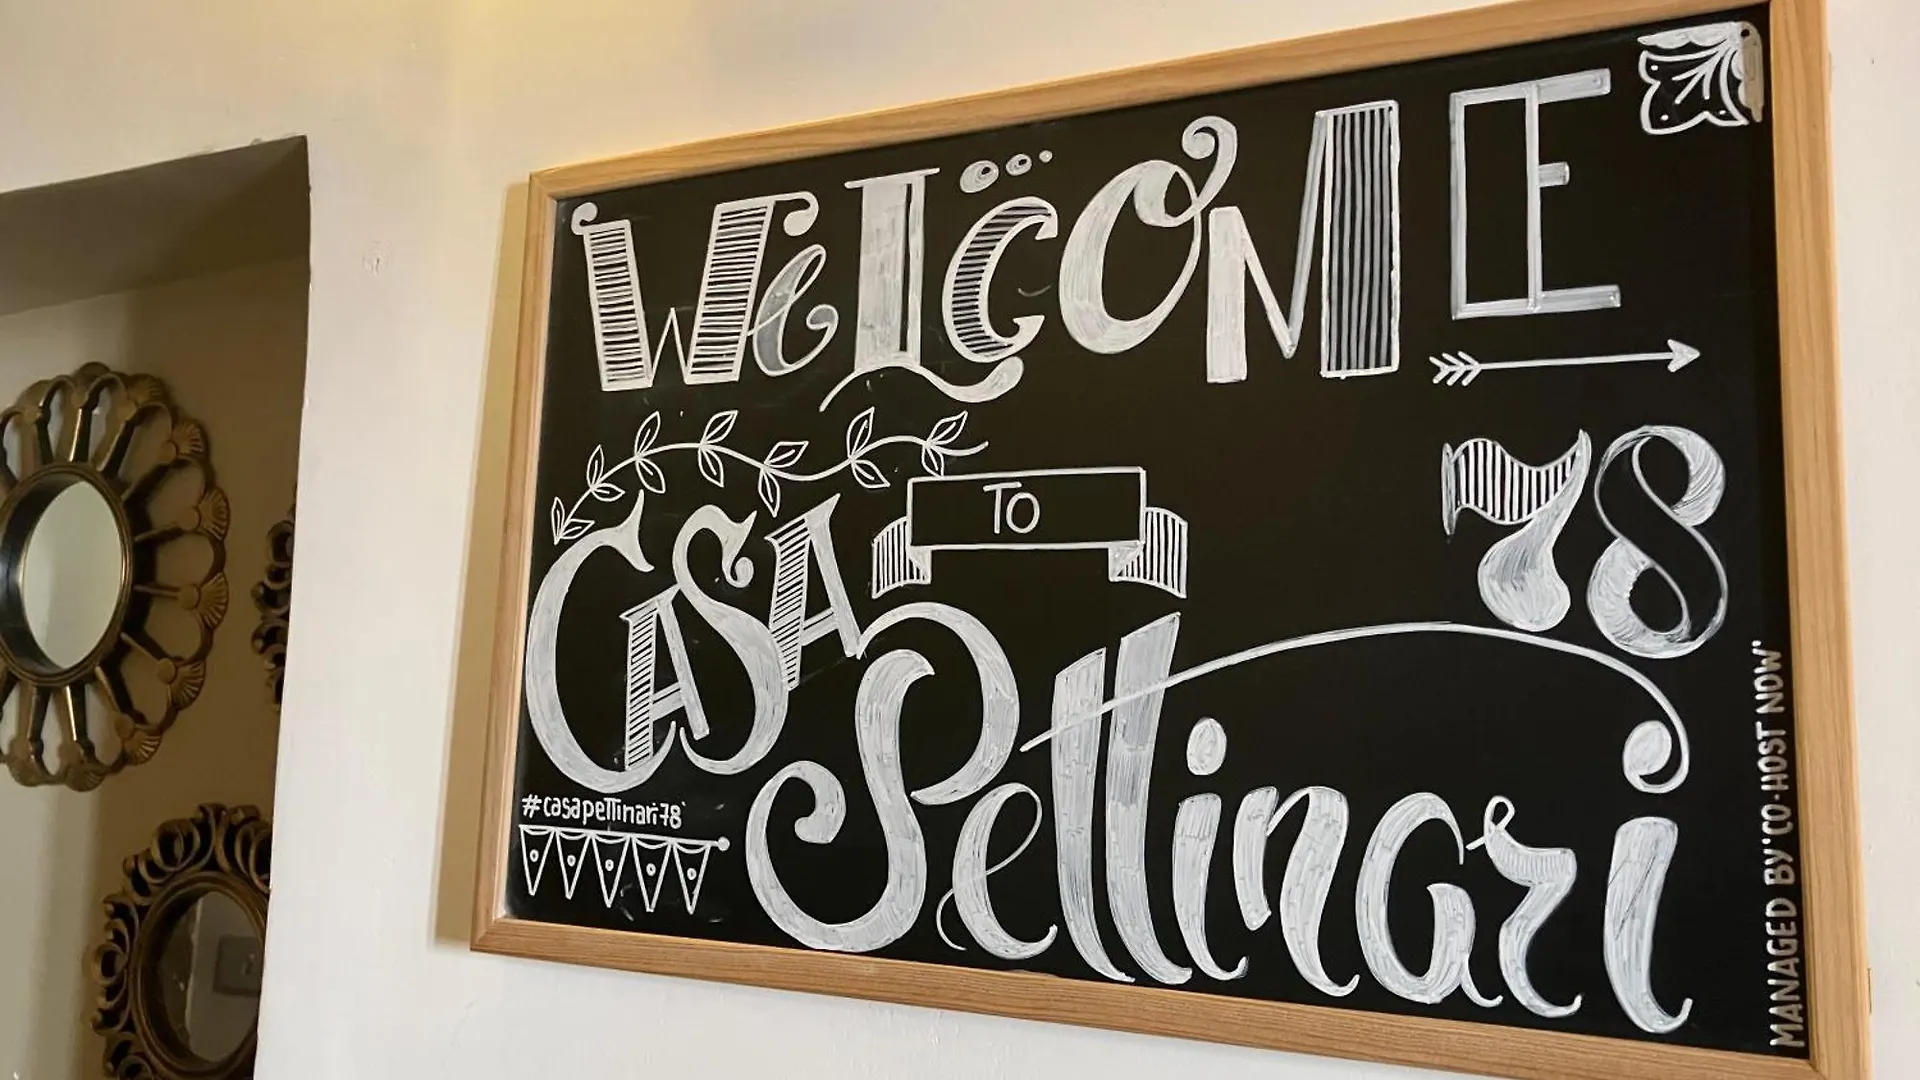 WeLCOME
TO
CASA
78
Pettinari
#casapettinari78
MANAGED BY 'CO HOST NOW'